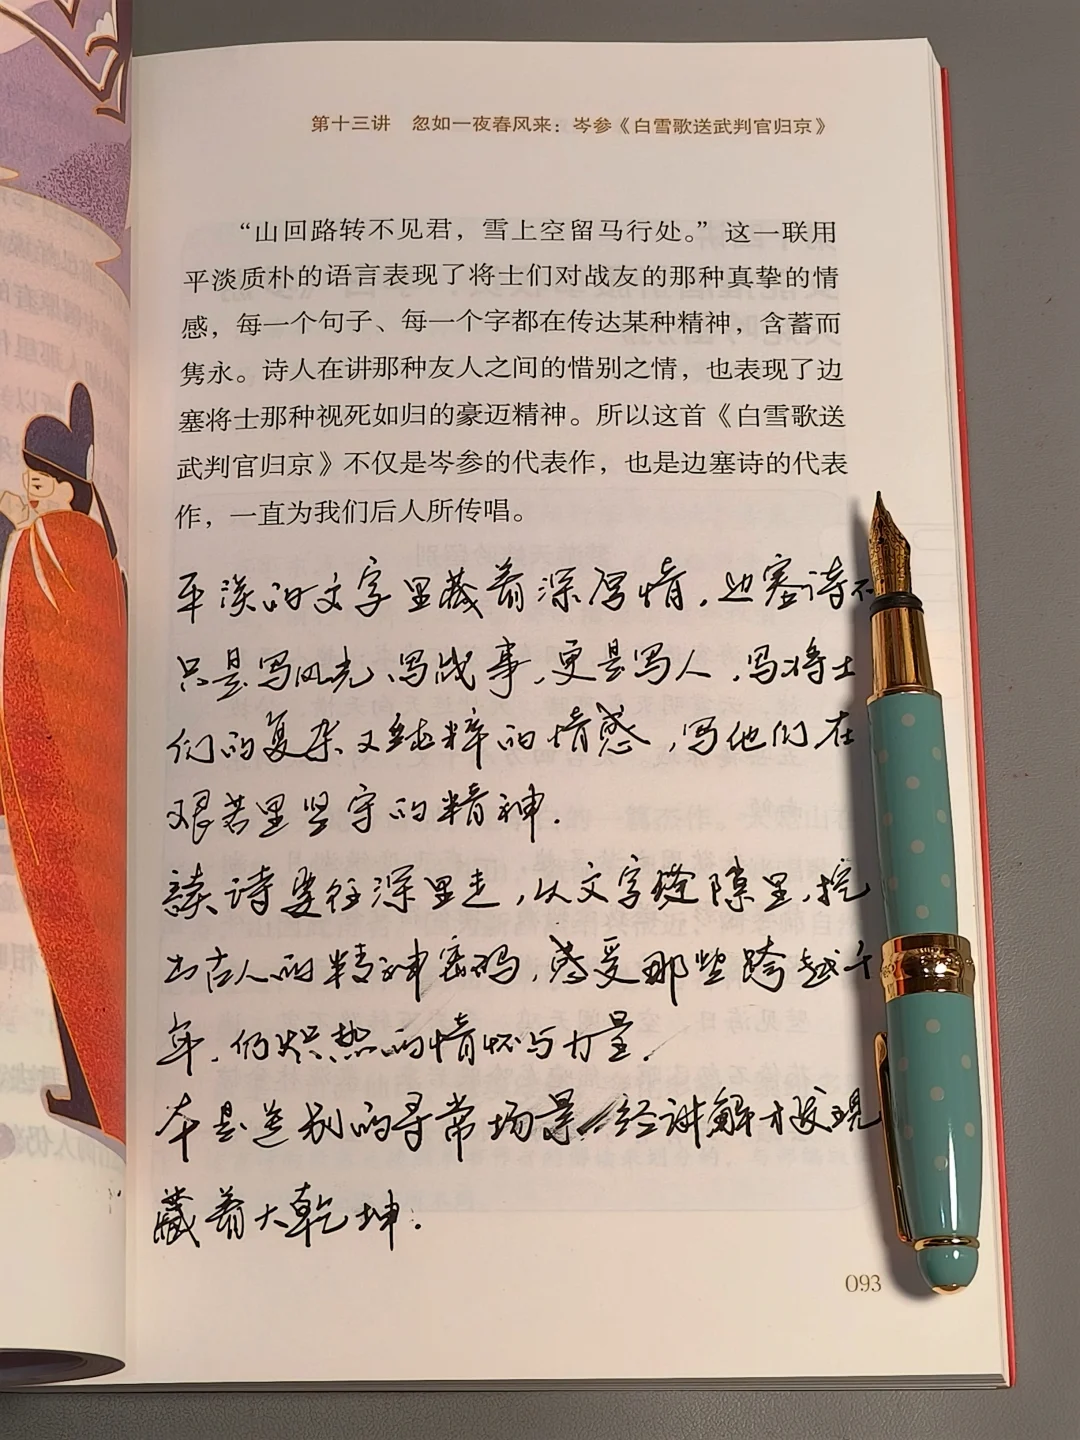 第十三讲 忽如一夜春风来：岑参《白雪歌送武判官归京》
“山回路转不见君，雪上空留马行处。”这一联用
平淡质朴的语言表现了将士们对战友的那种真挚的情
感，每一个句子、每一个字都在传达某种精神，含蓄而
隽永。诗人在讲那种友人之间的惜别之情，也表现了边
塞将士那种视死如归的豪迈精神。所以这首《白雪歌送
武判官归京》不仅是岑参的代表作，也是边塞诗的代表
作，一直为我们后人所传唱。
平淡的文字里藏着深厚情，边塞诗不
只是写风光、写战事，更是写人，写将士
们的复杂又纯粹的情感，写他们在
艰苦里坚守的精神.
读诗要往深里走，从文字缝隙里，挖
出古人的精神密码，感受那些跨越千
年，仍炽热的情怀与力量.
本是送别的寻常场景，经讲解才发现
藏着大乾坤.
093